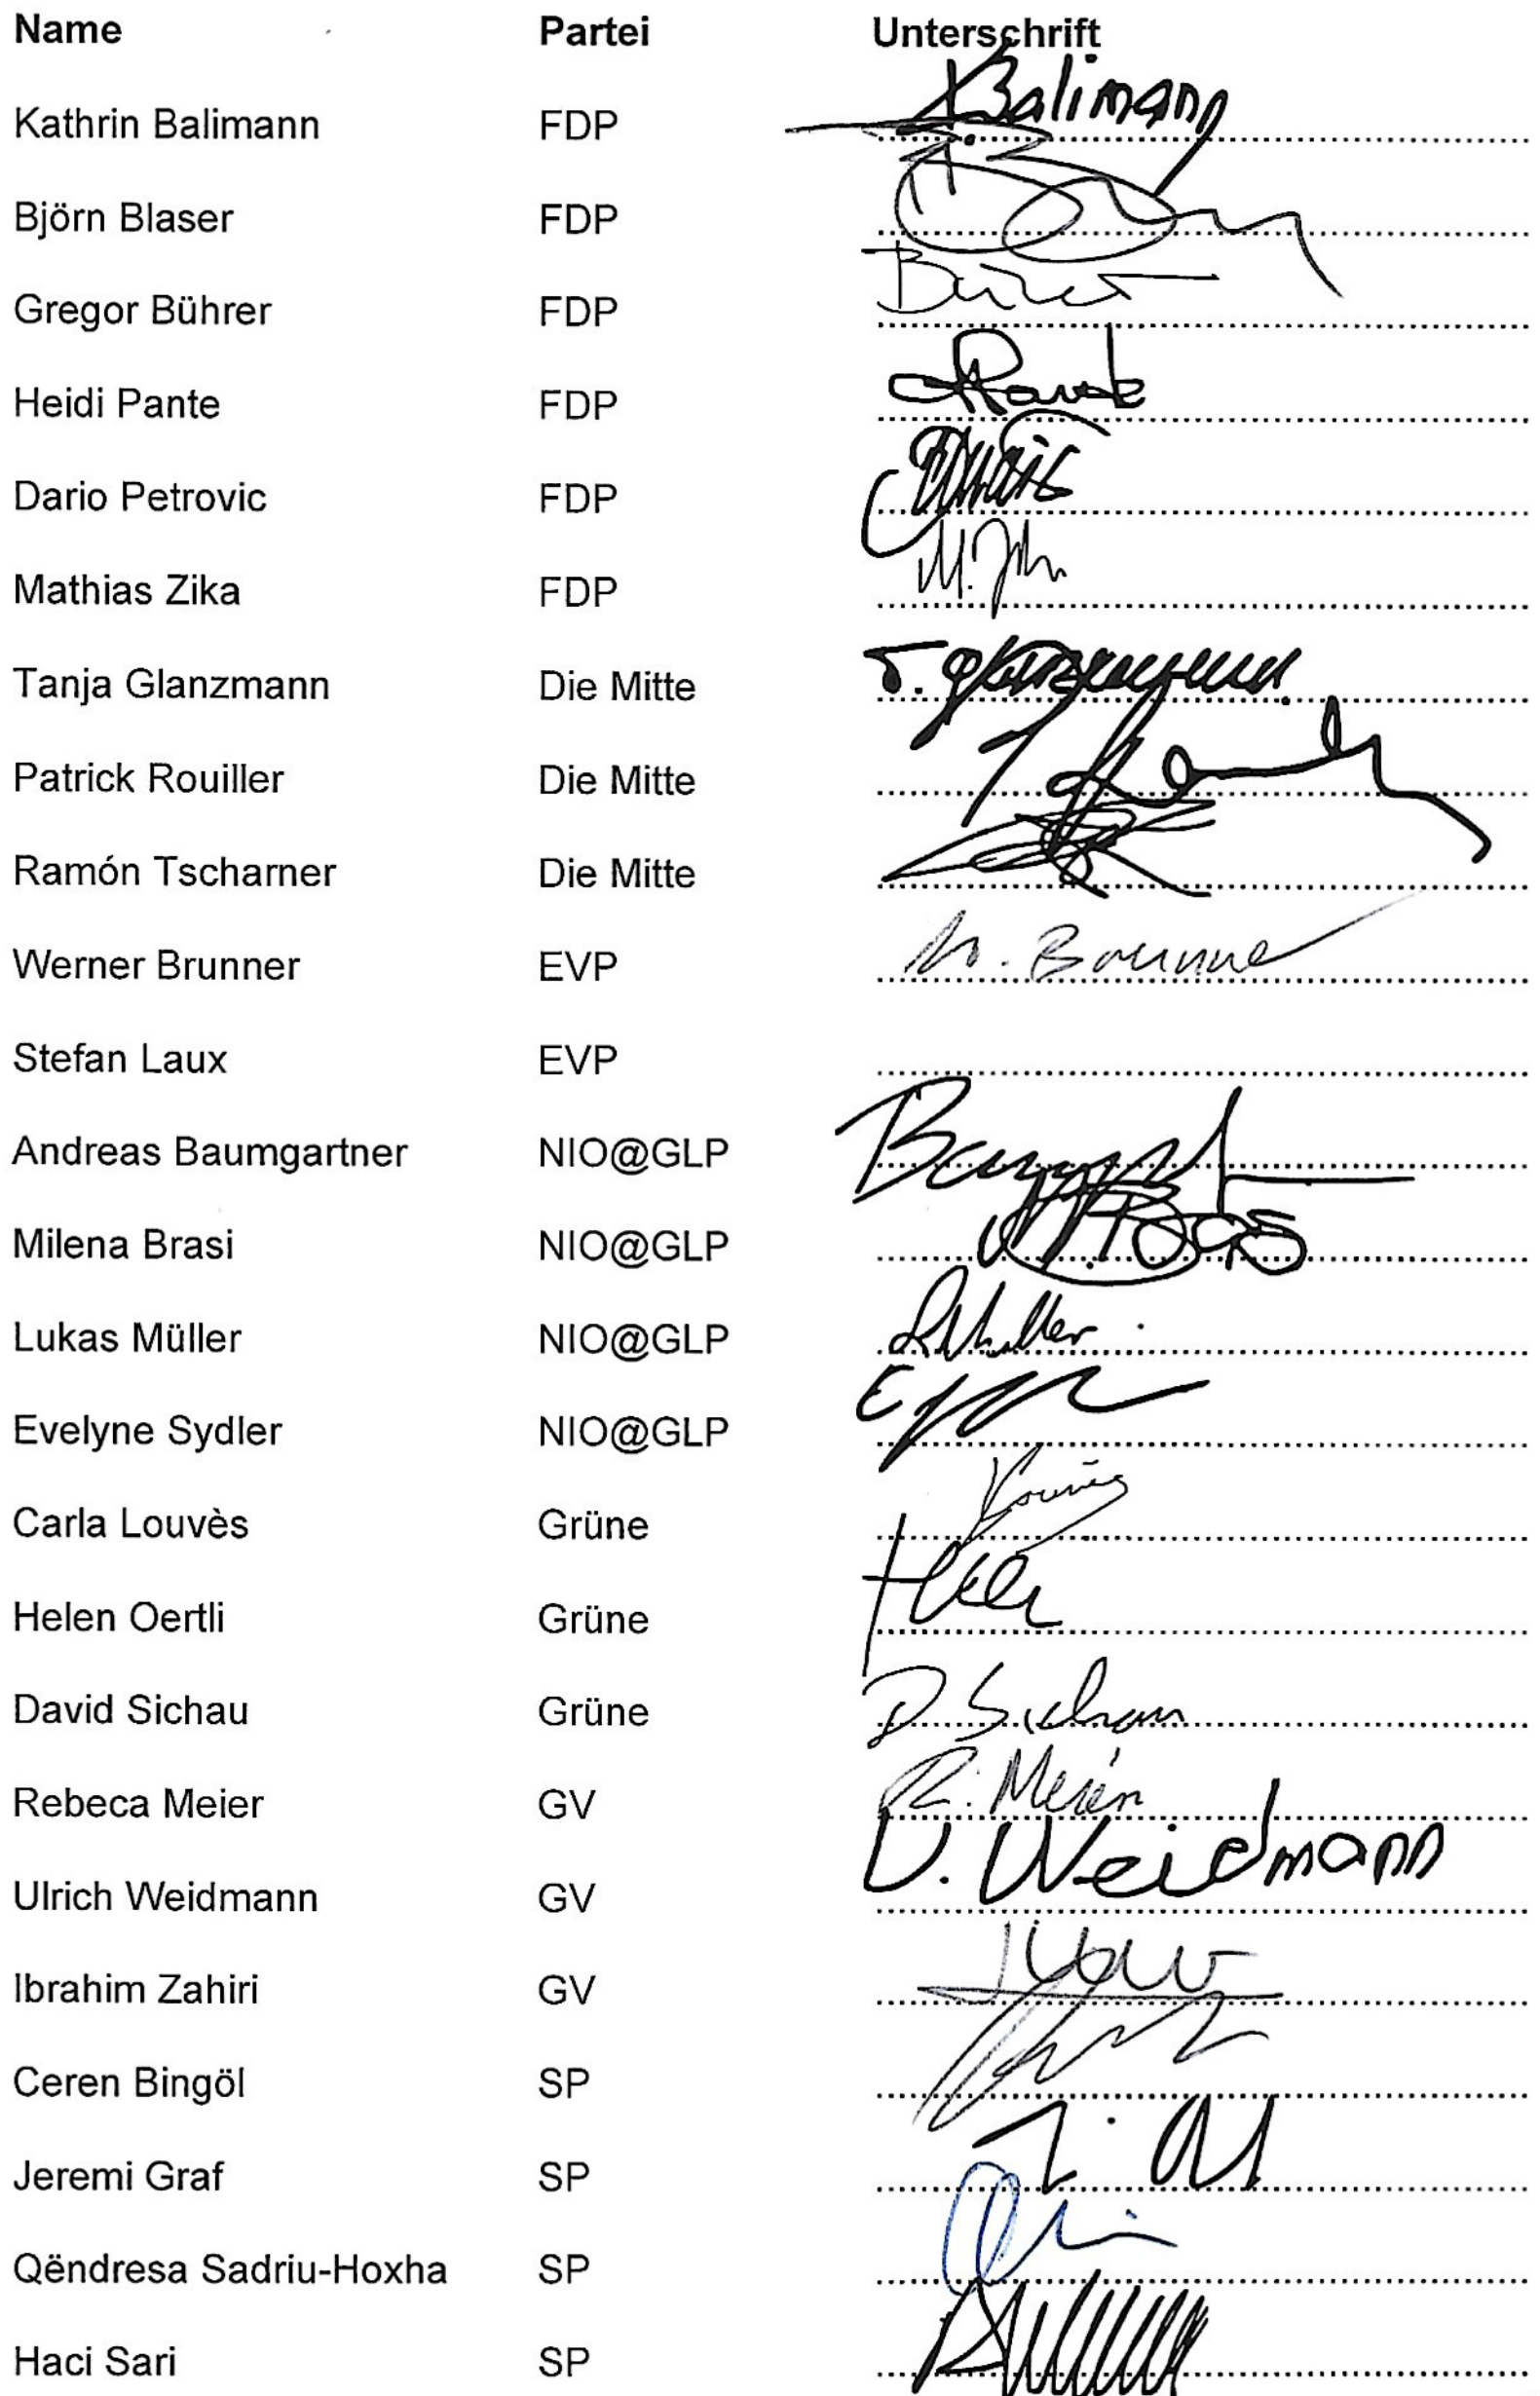 Name Partei Unterschrift
Kathrin Balimann FDP KBalimann
Björn Blaser FDP
Gregor Bührer FDP
Heidi Pante FDP HPante
Dario Petrovic FDP
Mathias Zika FDP
Tanja Glanzmann Die Mitte T. Glanzmann
Patrick Rouiller Die Mitte
Ramón Tscharner Die Mitte
Werner Brunner EVP W. Brunner
Stefan Laux EVP
Andreas Baumgartner NIO@GLP
Milena Brasi NIO@GLP
Lukas Müller NIO@GLP LMüller
Evelyne Sydler NIO@GLP
Carla Louvès Grüne
Helen Oertli Grüne
David Sichau Grüne D Sichau
Rebeca Meier GV R. Meier
Ulrich Weidmann GV U. Weidmann
Ibrahim Zahiri GV
Ceren Bingöl SP
Jeremi Graf SP
Qëndresa Sadriu-Hoxha SP
Haci Sari SP